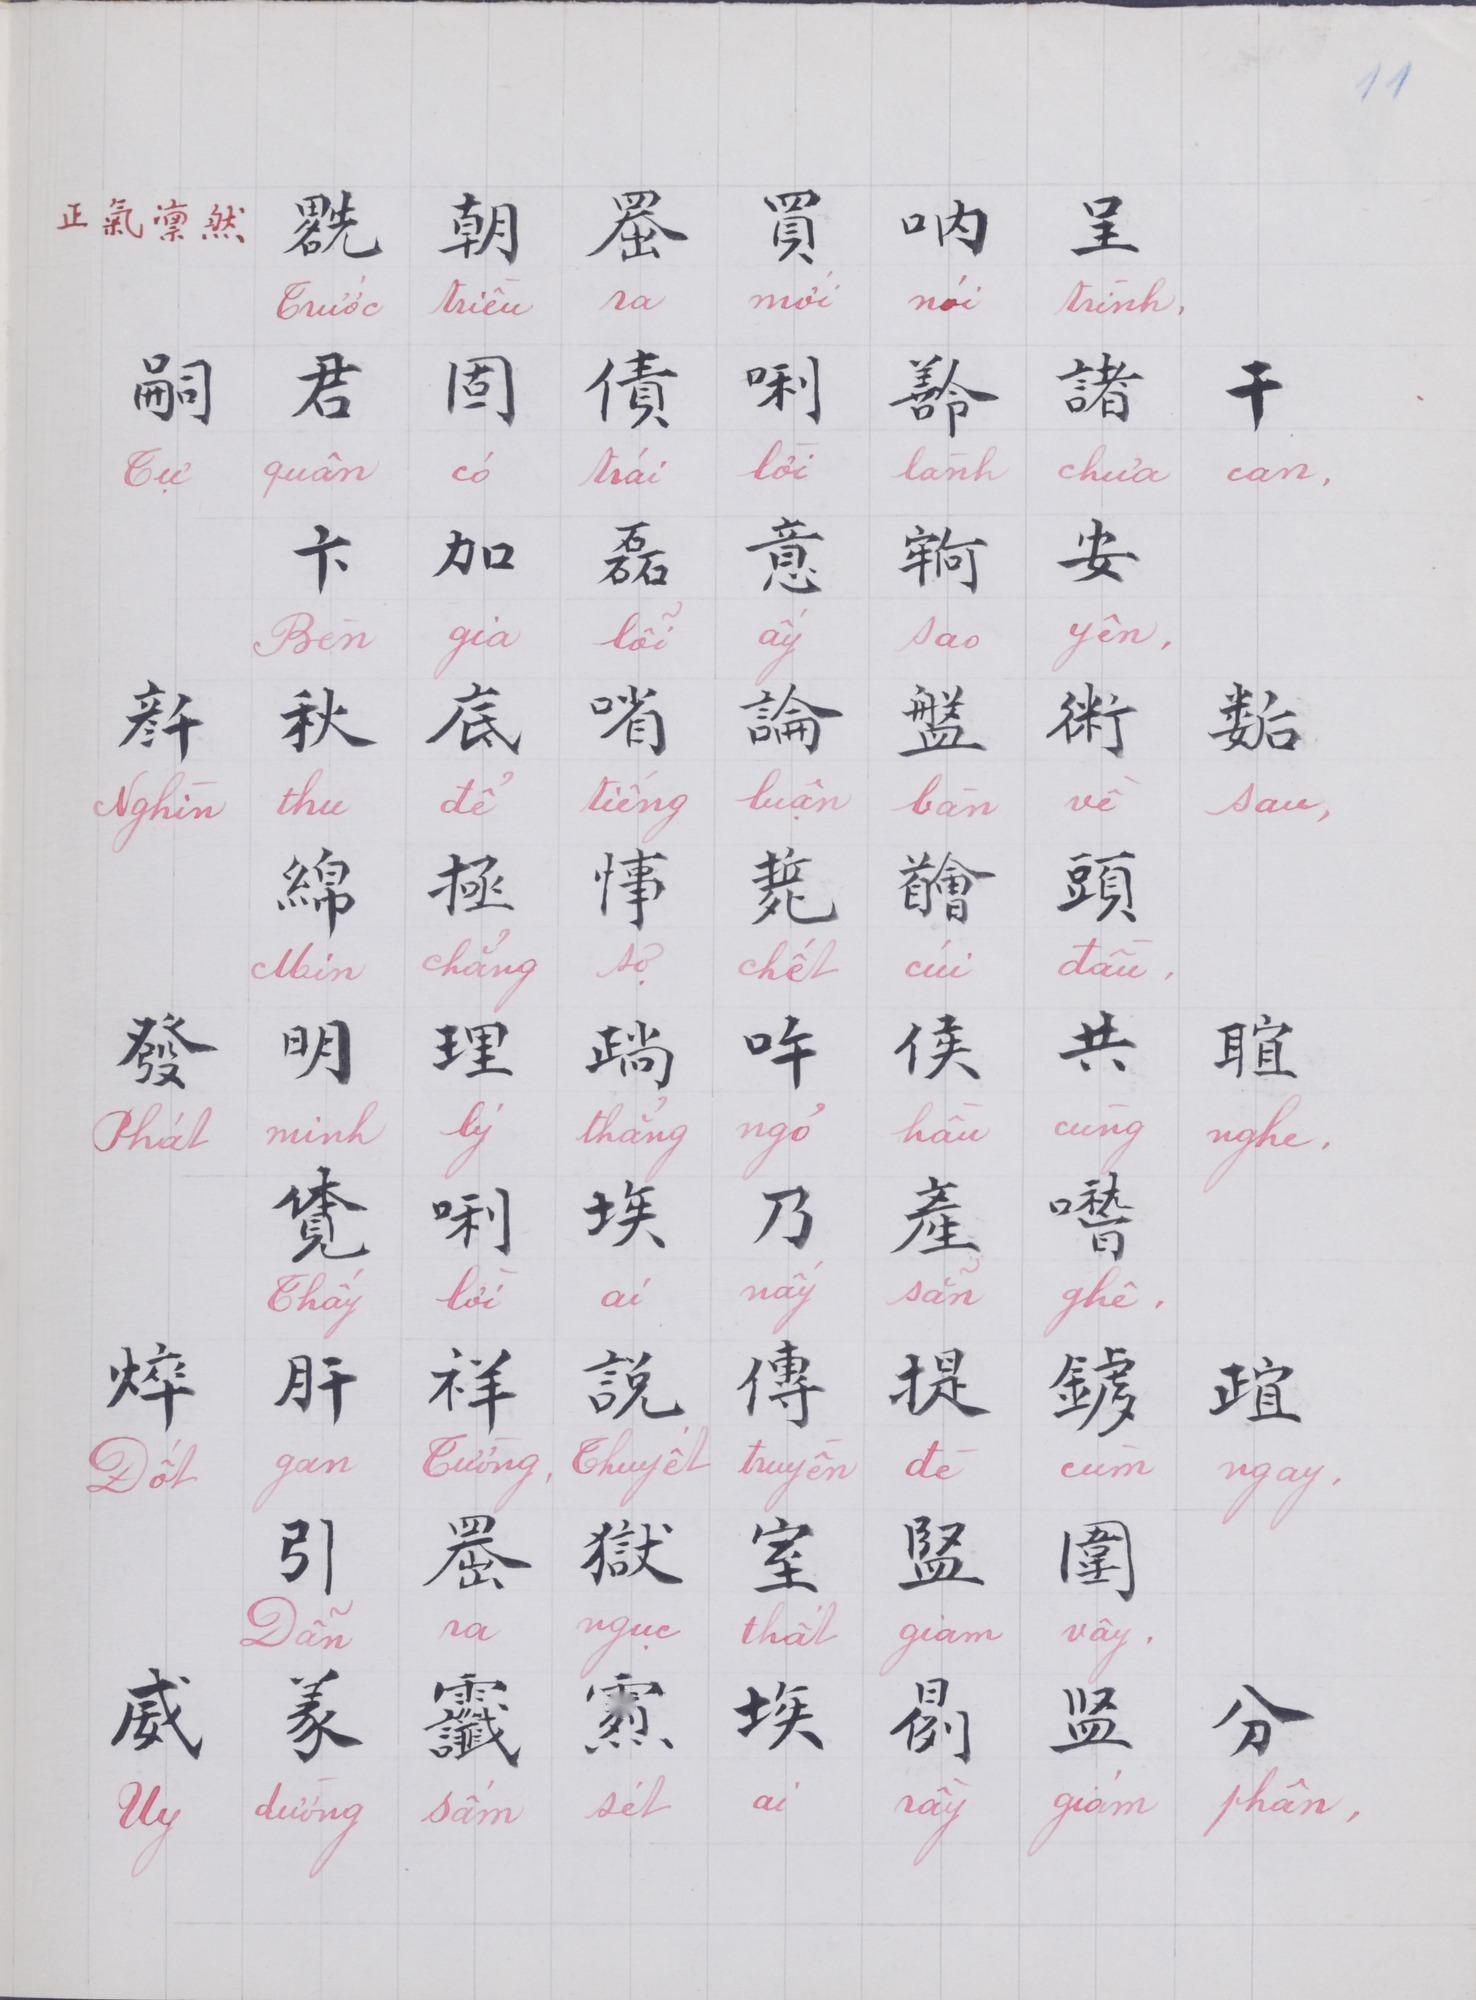 11
正氣凛然 𠓀朝𠚢買吶呈
Trước triều ra mới nói trình,
嗣君固債唎𫅜諸干
Tự quân có trái lời lành chưa can,
卞加磊意𫳵安
Bèn gia lỗi ấy sao yên,
𠦳秋底哨論盤術𡢐
Nghìn thu để tiếng luận bàn về sau,
綿拯㤕𣩂𩠠頭
Min chẳng sợ chết cúi đầu,
發明理𣦎吘侯共𦖑
Phát minh lý thẳng ngỏ hầu cùng nghe,
覓唎埃乃產噆
Thấy lời ai nấy sẵn ghê,
焠肝祥説傳提鐻𣦍
Đốt gan Tường, Thuyết truyền đề cùm ngay,
引𠚢獄室監圍
Dẫn ra ngục thất giam vây,
威羕𩆐𩆷埃𣈙监分
Uy dường sấm sét ai rầy giám phân,